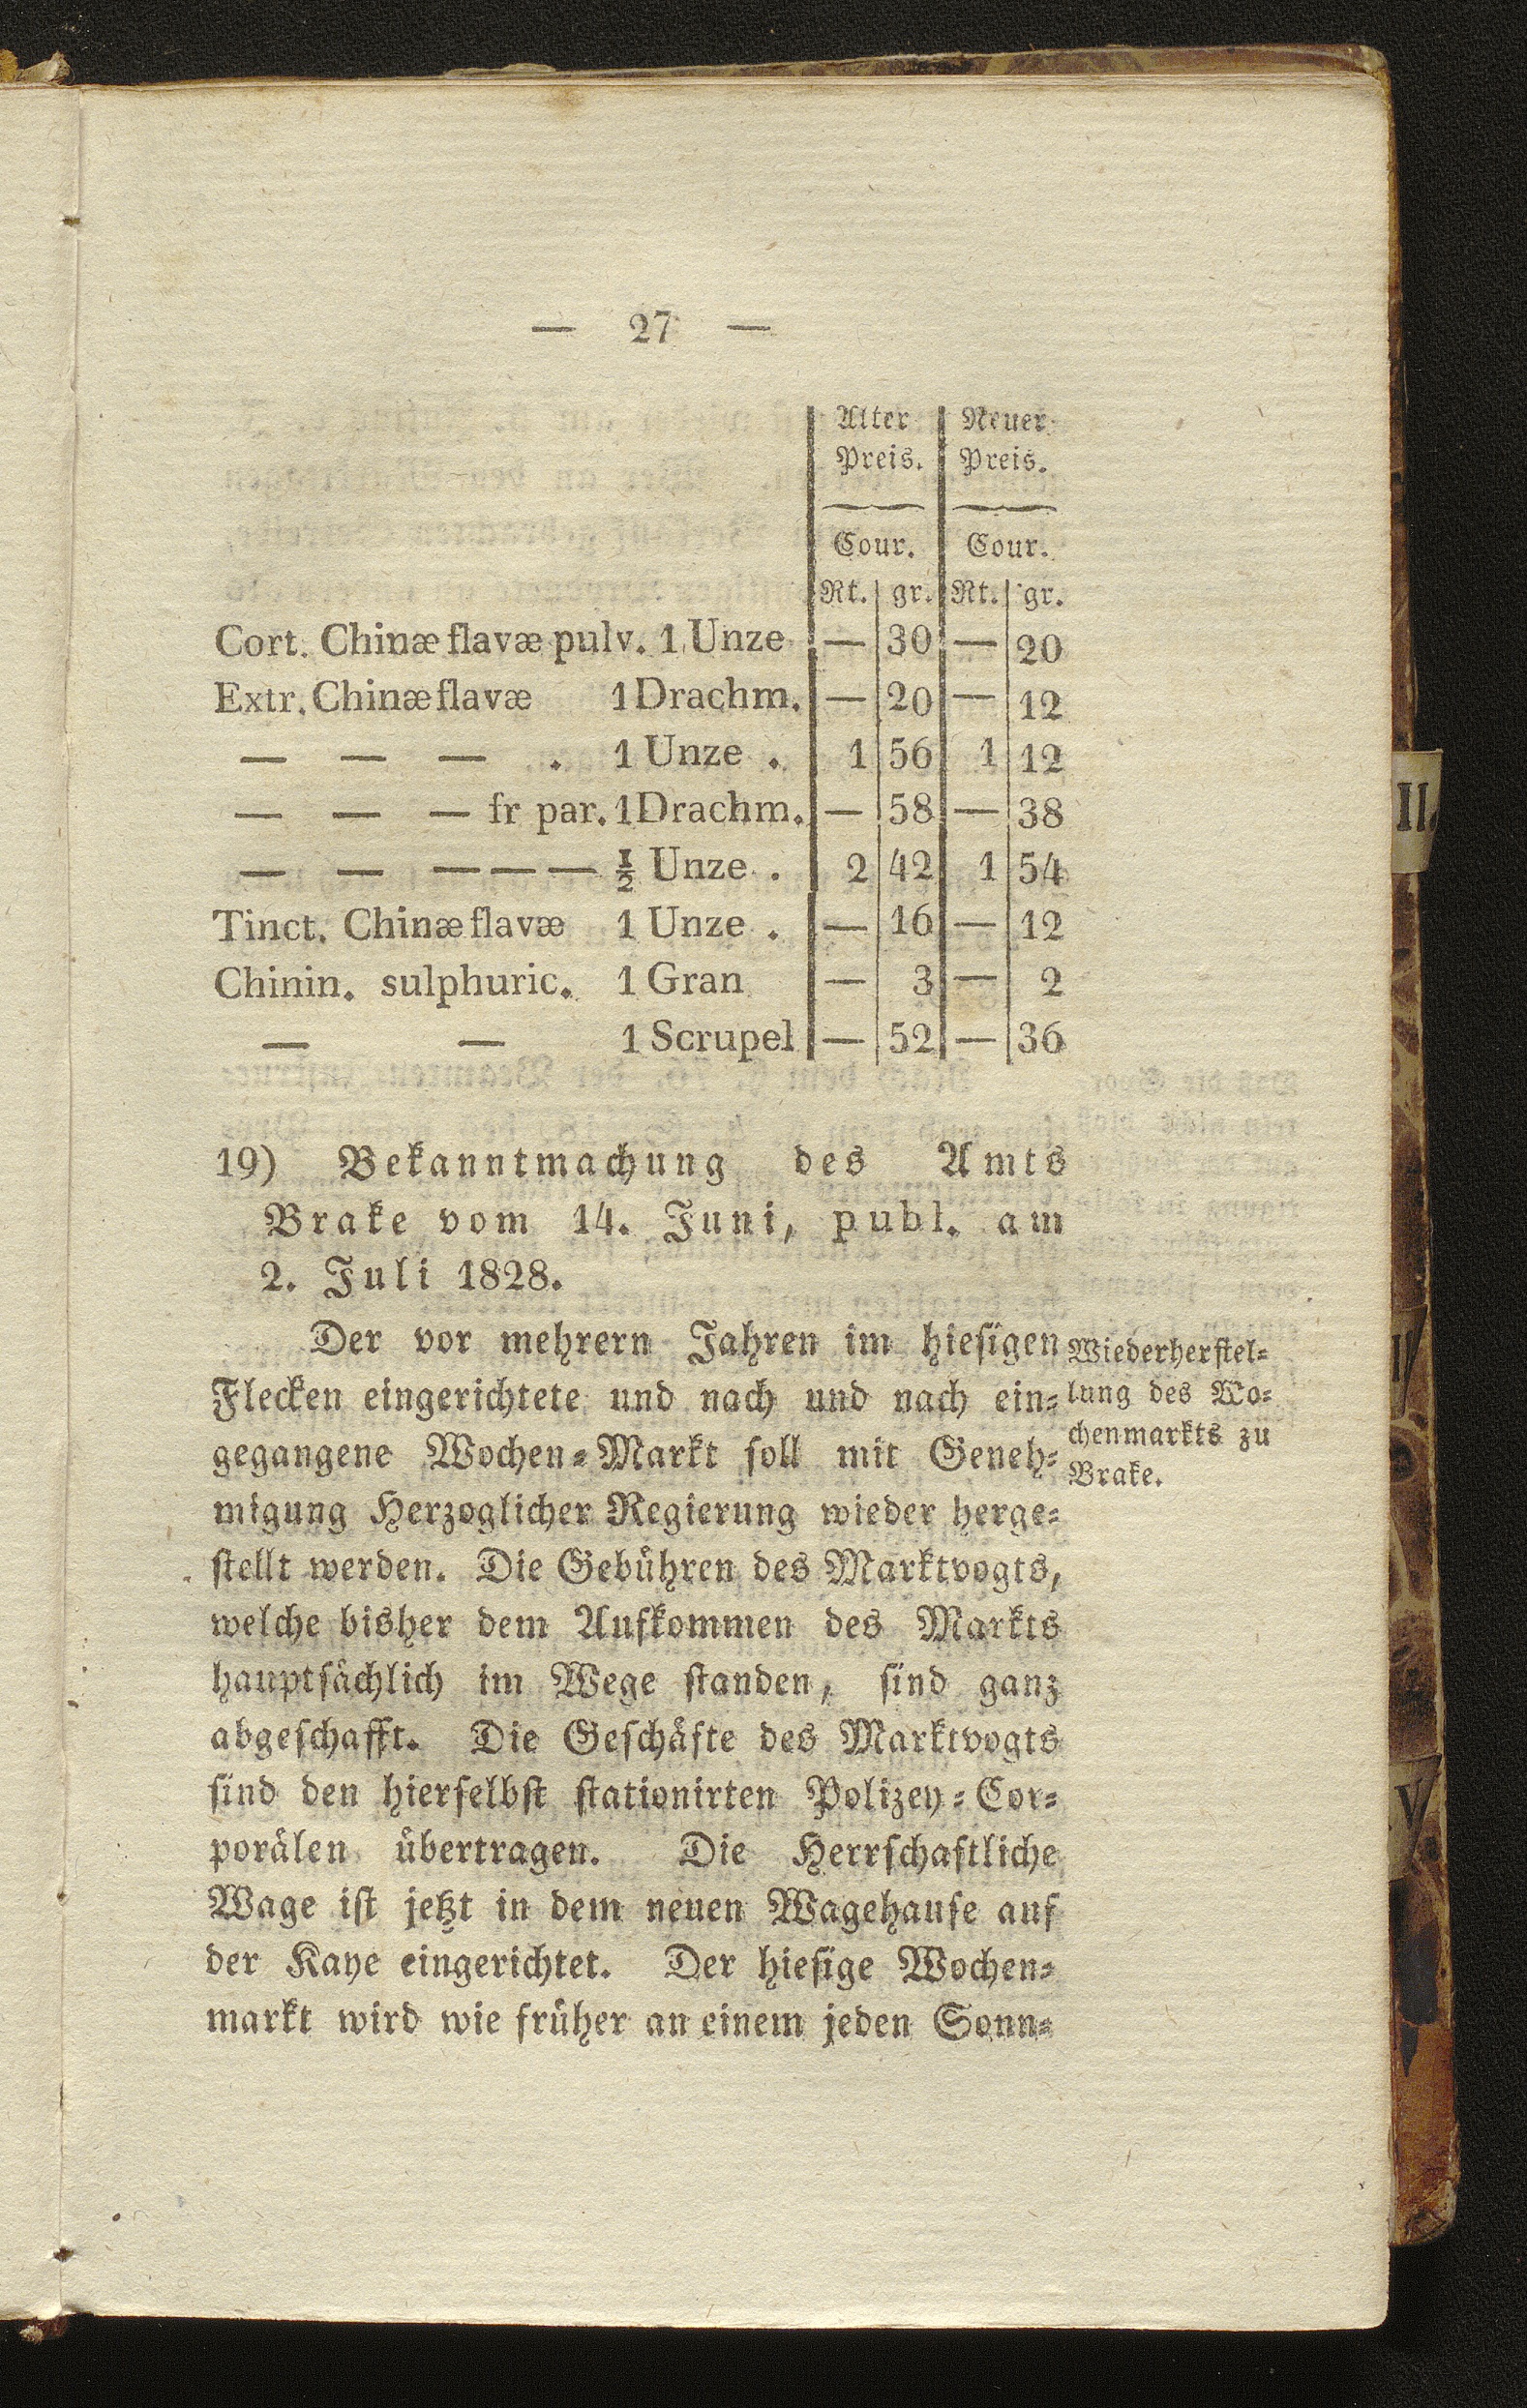 — 27 —
Alter Neuer
Preis. Preis.
Cour. Cour.
Rt. gr. Rt. gr.
Cort. Chinæ flavæ pulv. 1 Unze — 30 — 20
Extr. Chinæ flavæ 1 Drachm. — 20 — 12
— — — . 1 Unze . 1 56 1 12
— — — fr par. 1 Drachm. — 58 — 38
— — — — — ½ Unze . 2 42 1 54
Tinct. Chinæ flavæ 1 Unze . — 16 — 12
Chinin. sulphuric. 1 Gran — 3 — 2
— — 1 Scrupel — 52 — 36
19) Bekanntmachung des Amts
Brake vom 14. Juni, publ. am
2. Juli 1828.
Der vor mehrern Jahren im hiesigen
Flecken eingerichtete und nach und nach ein-
gegangene Wochen-Markt soll mit Geneh-
migung Herzoglicher Regierung wieder herge-
stellt werden. Die Gebühren des Marktvogts,
welche bisher dem Aufkommen des Markts
hauptsächlich im Wege standen, sind ganz
abgeschafft. Die Geschäfte des Marktvogts
sind den hierselbst stationirten Polizey-Cor-
porälen übertragen. Die Herrschaftliche
Wage ist jetzt in dem neuen Wagehause auf
der Kaye eingerichtet. Der hiesige Wochen-
markt wird wie früher an einem jeden Sonn-
Wiederherstel-
lung des Wo-
chenmarkts zu
Brake.
II
V